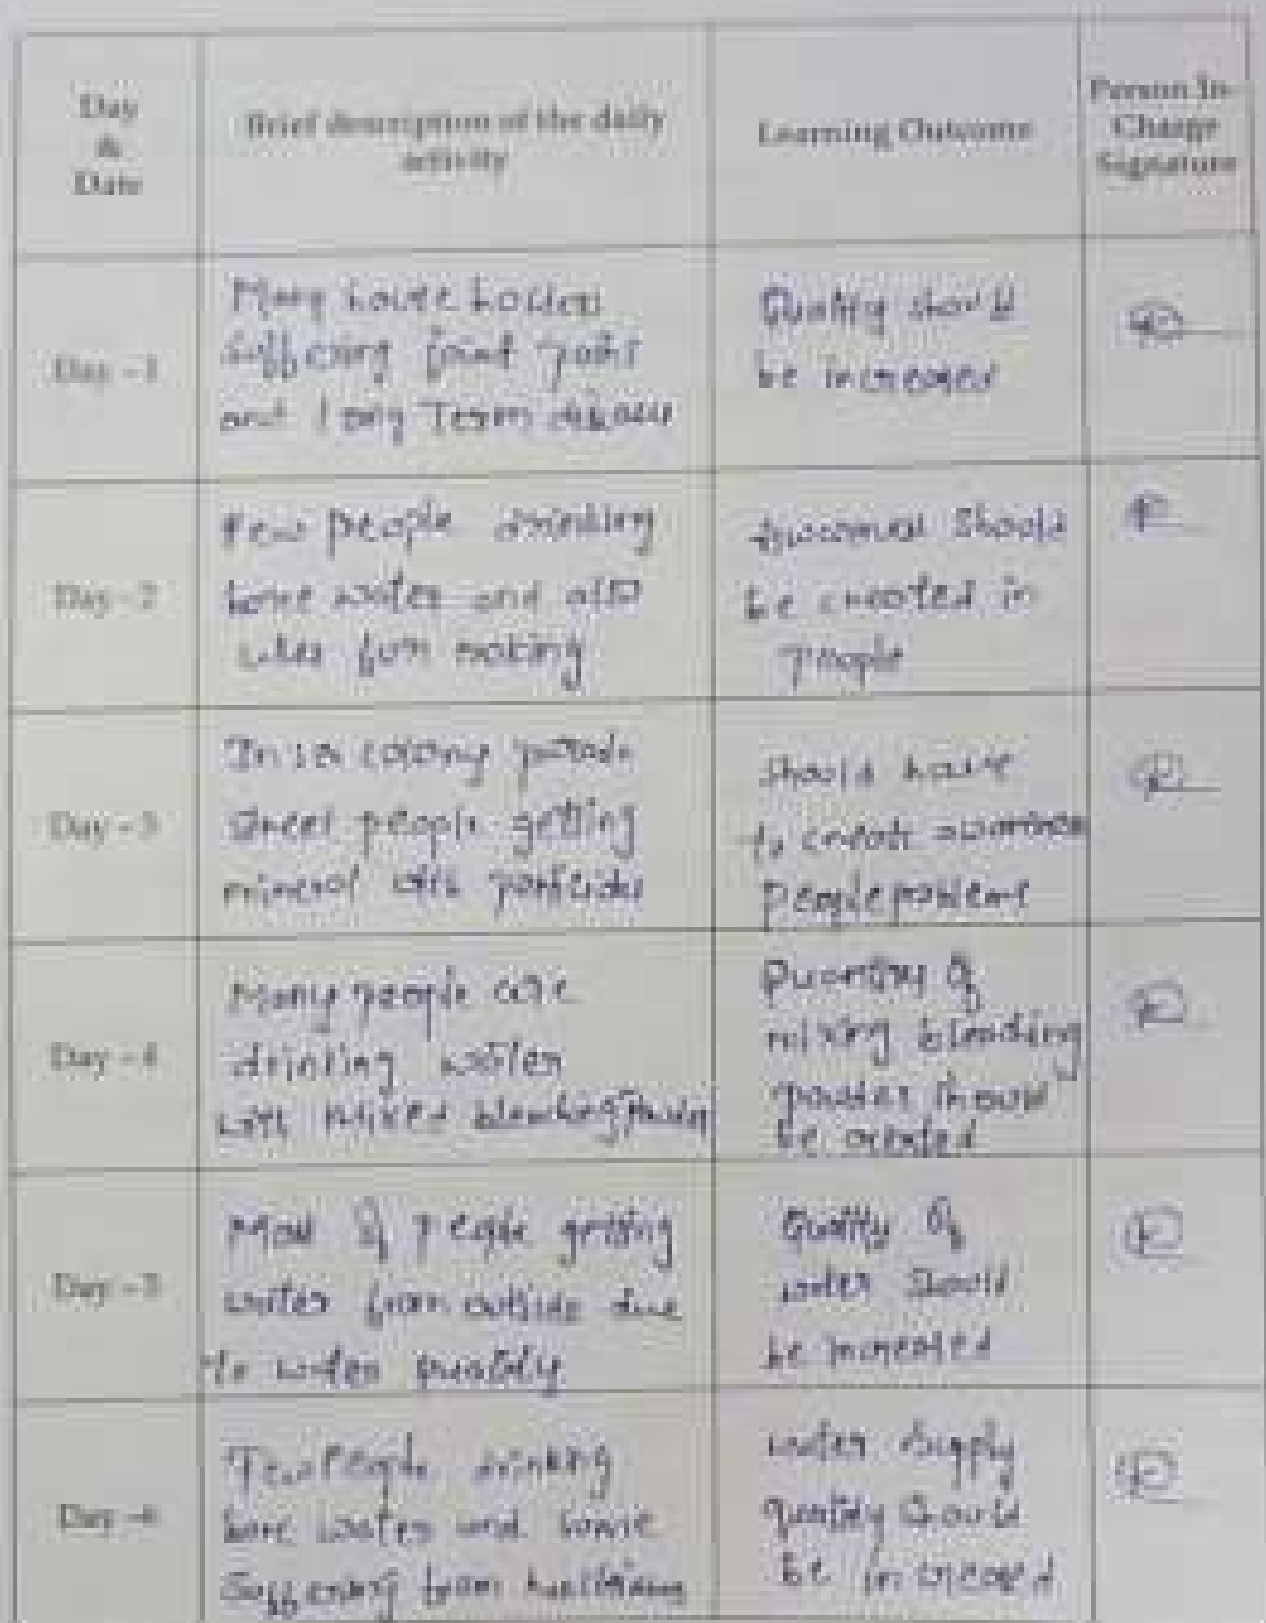 Day
&
Date
Brief description of the daily
activity
Learning Outcome
Person In-
Charge
Signature
Day - 1
Many house holders
suffering joint pains
and long Term disease
Quality should
be increased
Day - 2
Few people drinking
bore water and also
uses for making
should
be created in
people
Day - 3
In colony
street people getting
mineral
should have
to create
people problems
Day - 4
Many people are
drinking water
with mixed bleaching
Quantity of
mixing bleaching
powder should
be created
Day - 5
Most of people getting
water from outside due
to water quality
Quality of
water should
be increased
Day - 6
Few People drinking
bore water and some
suffering from
water supply
quality should
be increased